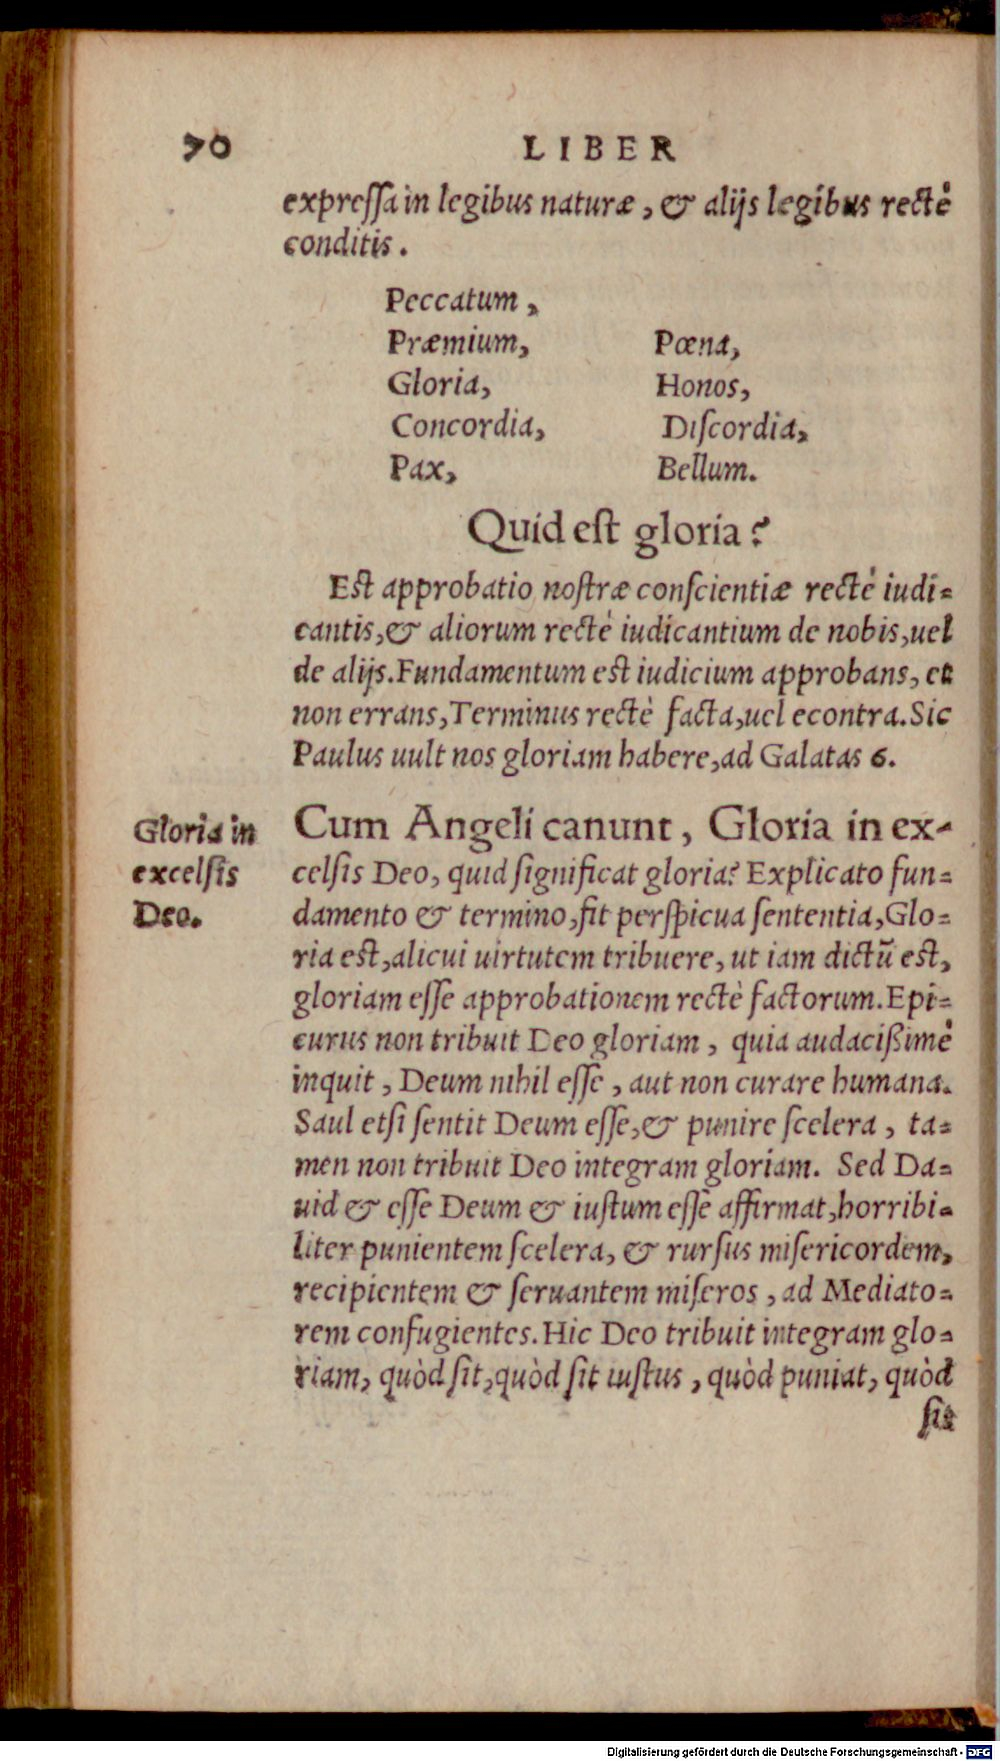 70 LIBER
expressa in legibus naturæ, & alijs legibus rectè
conditis.
Peccatum,
Præmium, Pœna,
Gloria, Honos,
Concordia, Discordia,
Pax, Bellum.
Quid est gloria?
Est approbatio nostræ conscientiæ rectè iudi=
cantis, & aliorum rectè iudicantium de nobis, uel
de alijs. Fundamentum est iudicium approbans, et
non errans, Terminus rectè facta, uel econtra. Sic
Paulus uult nos gloriam habere, ad Galatas 6.
Gloria in
excelsis
Deo.
Cum Angeli canunt, Gloria in ex-
celsis Deo, quid significat gloria? Explicato fun=
damento & termino, fit perspicua sententia, Glo=
ria est, alicui uirtutem tribuere, ut iam dictũ est,
gloriam esse approbationem rectè factorum. Epi=
curus non tribuit Deo gloriam, quia audacißimè
inquit, Deum nihil esse, aut non curare humana.
Saul etsi sentit Deum esse, & punire scelera, ta=
men non tribuit Deo integram gloriam. Sed Da=
uid & esse Deum & iustum esse affirmat, horribi=
liter punientem scelera, & rursus misericordem,
recipientem & seruantem miseros, ad Mediato=
rem confugientes. Hic Deo tribuit integram glo=
riam, quòd sit, quòd sit iustus, quòd puniat, quòd
sit
Digitalisierung gefördert durch die Deutsche Forschungsgemeinschaft - DFG